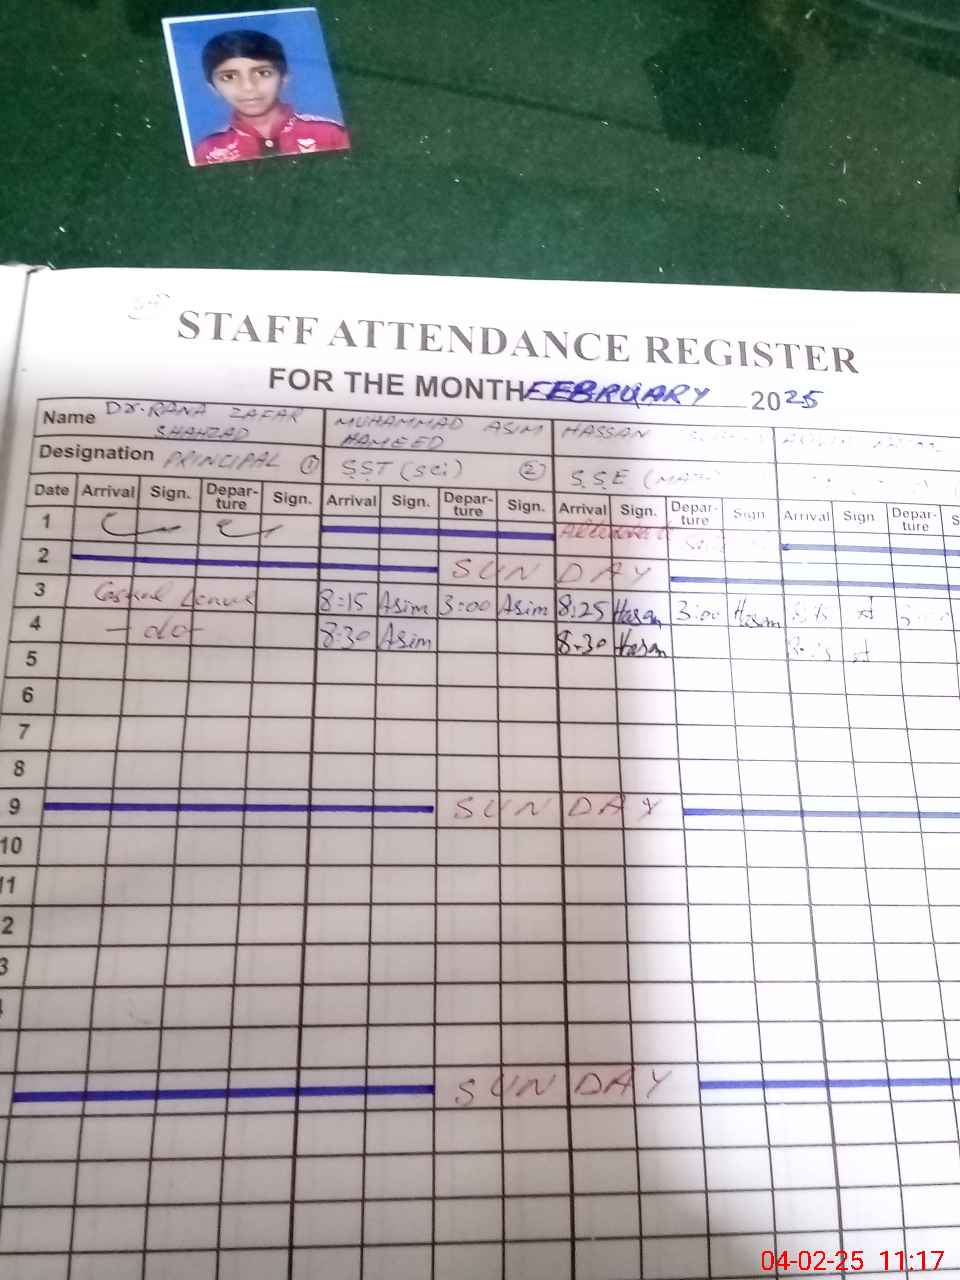 STAFF ATTENDANCE REGISTER
FOR THE MONTH FEBRUARY 2025
Name Dr. RANA ZAFAR SHAHZAD MUHAMMAD ASIM HAMEED HASSAN
Designation PRINCIPAL ① SST (sci) ② S.S.E
Date Arrival Sign. Depar-ture Sign. Arrival Sign. Depar-ture Sign. Arrival Sign. Depar-ture Sign Arrival Sign Depar-ture S
1
2 SUNDAY
3 Casual Leave 8:15 Asim 3:00 Asim 8:25 Hasan 3:00 Hasan
4 -do- 8:30 Asim 8:30 Hasan
5
6
7
8
9 SUNDAY
10
11
2
3
SUNDAY
04-02-25 11:17